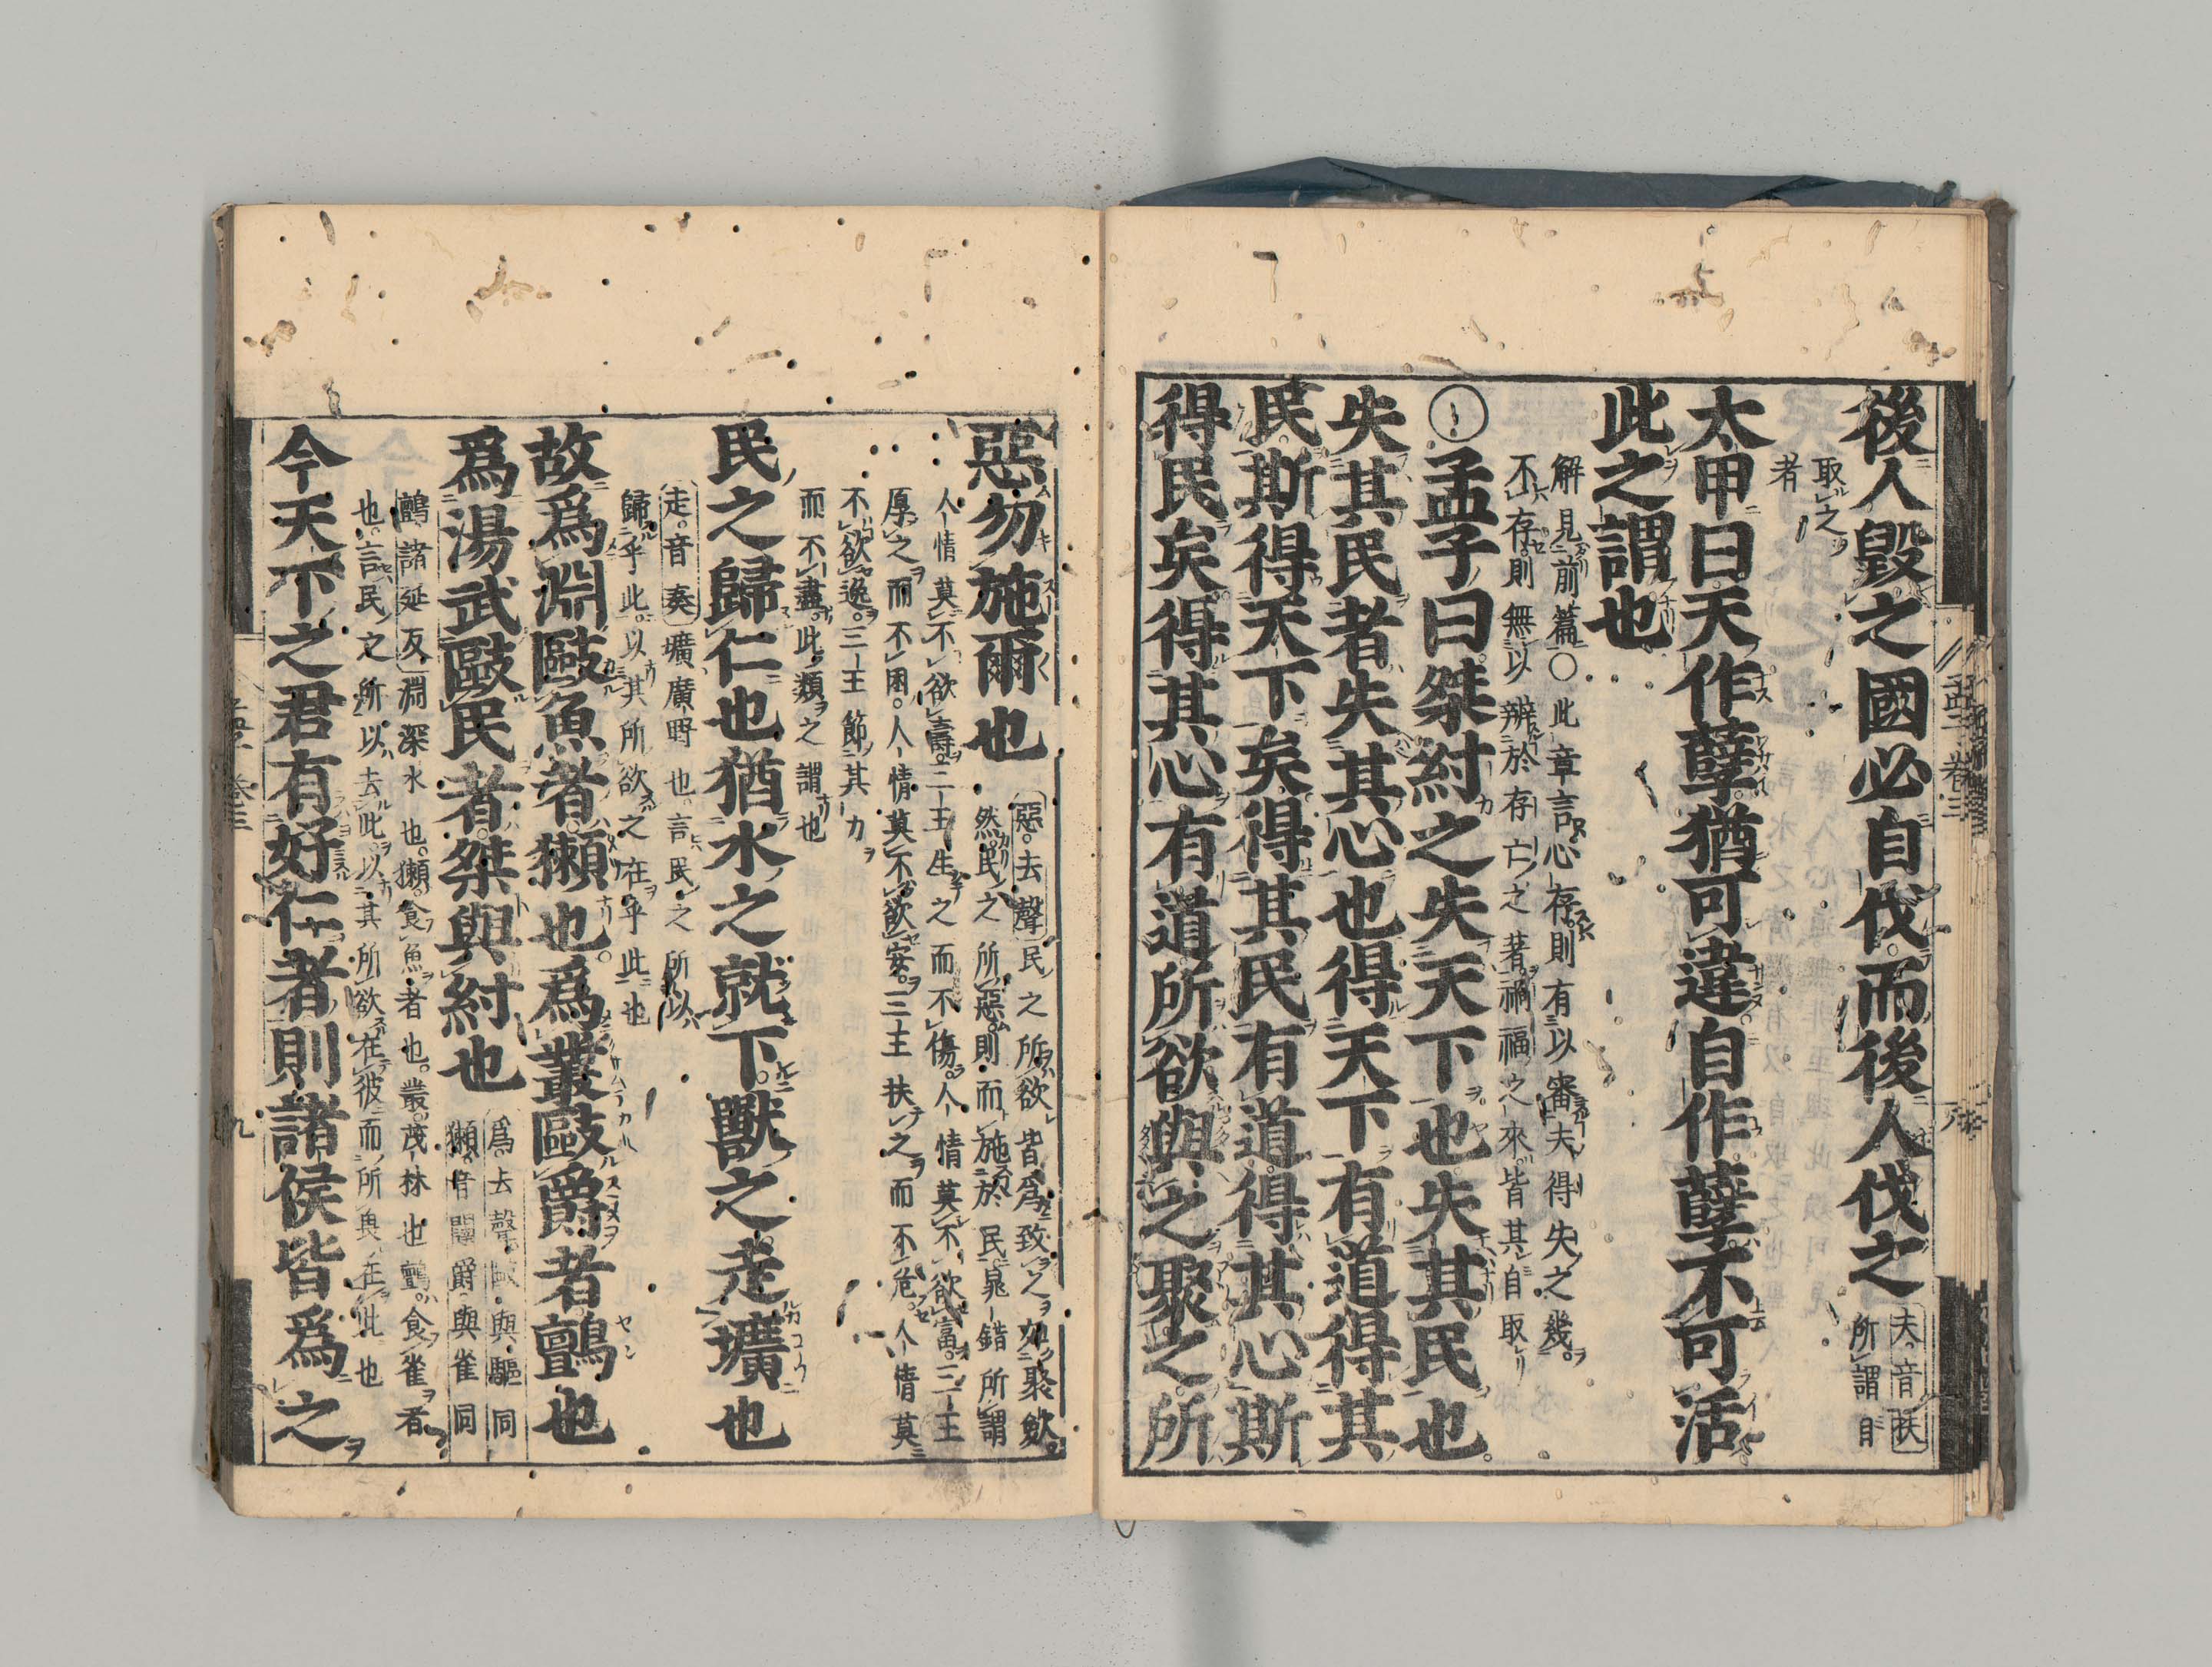 後人毀之國必自伐而後人伐之
夫音扶
所謂自
取之
者
太甲曰天作孽猶可違自作孽不可活
此之謂也
解見前篇○此章言心存則有以審夫得失之幾
不存則無以辨於存亡之著禍福之來皆其自取
○孟子曰桀紂之失天下也失其民也
失其民者失其心也得天下有道得其
民斯得天下矣得其民有道得其心斯
得民矣得其心有道所欲與之聚之所
惡勿施爾也
惡去聲民之所欲皆爲致之如聚歛
然民之所惡則而施於民鼂錯所謂
人情莫不欲壽三王生之而不傷人情莫不欲富三王
厚之而不困人情莫不欲安三王扶之而不危人情莫
不欲逸三王節其力
而不盡此類之謂也
民之歸仁也猶水之就下獸之走壙也
走音奏壙廣野也言民之所以
歸乎此以其所欲之在乎此也
故爲淵敺魚者獺也爲叢敺爵者鸇也
爲湯武敺民者桀與紂也
爲去聲敺與驅同
獺音闥爵與雀同
鸇諸延反淵深水也獺食魚者也叢茂林也鸇食雀者
也言民之所以去此以其所欲在彼而所與在此也
今天下之君有好仁者則諸侯皆爲之
孟子卷三
九